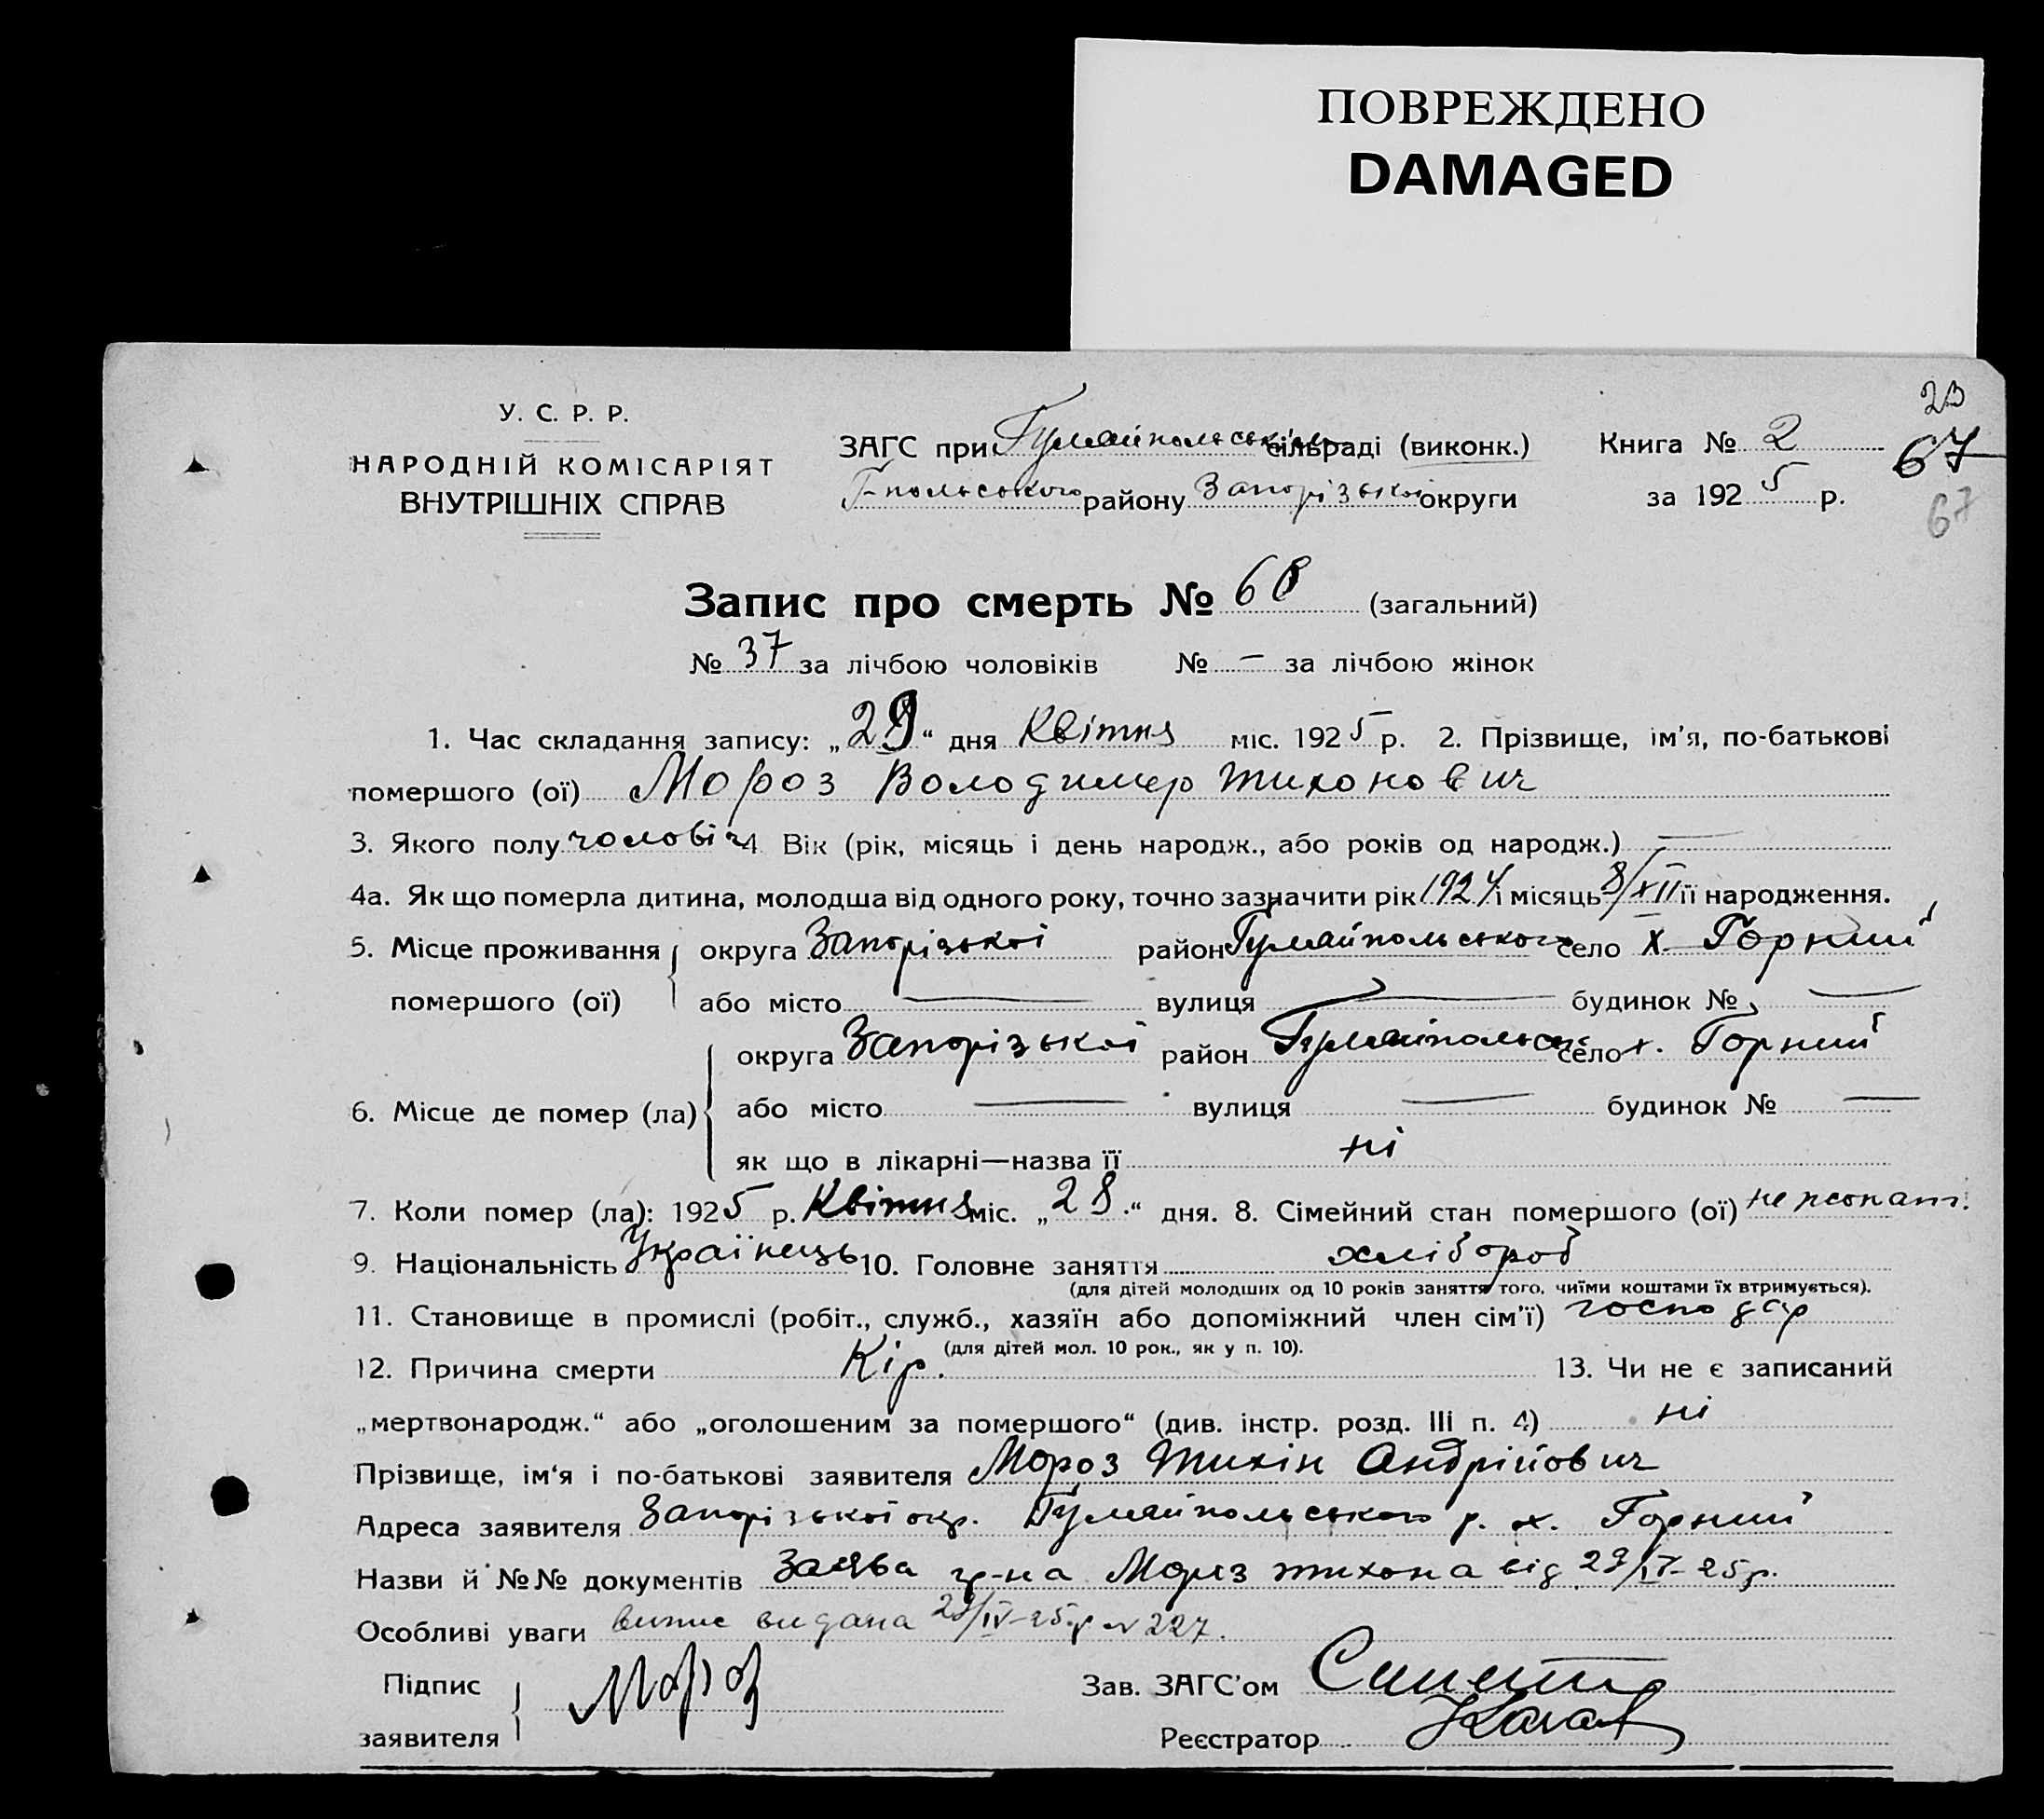 ПОВРЕЖДЕНО
DAMAGED
23
У. С. Р. Р.
НАРОДНІЙ КОМІСАРІЯТ
ВНУТРІШНІХ СПРАВ
ЗАГС при Гуляйпольськім сільраді (виконк.)
Г-польського району Запорізької округи
Книга № 2
за 1925 р.
67
67
Запис про смерть № 68 (загальний)
№ 37 за лічбою чоловіків № — за лічбою жінок
1. Час складання запису: „29“ дня Квітня міс. 1925 р. 2. Прізвище, ім'я, по-батькові
помершого (ої) Мороз Володимер Тихонович
3. Якого полу чоловіч 4 Вік (рік, місяць і день народж., або років од народж.) —
4а. Як що померла дитина, молодша від одного року, точно зазначити рік 1924 і місяць 8/XII її народження.
5. Місце проживання округа Запорізької район Гуляйпольського село х. Горний
помершого (ої) або місто — вулиця — будинок № —
округа Запорізької район Гуляйпольськ село х. Горний
6. Місце де помер (ла) або місто — вулиця — будинок № —
як що в лікарні—назва її ні
7. Коли помер (ла): 1925 р. Квітня міс. „28“ дня. 8. Сімейний стан помершого (ої) не жонат.
9. Національність Українець 10. Головне заняття хлібороб
(для дітей молодших од 10 років заняття того, чиїми коштами їх втримується).
11. Становище в промислі (робіт., служб., хазяїн або допоміжний член сім'ї) господар
(для дітей мол. 10 рок., як у п. 10).
12. Причина смерти Кір. 13. Чи не є записаний
„мертвонародж.“ або „оголошеним за помершого“ (див. інстр. розд. III п. 4) ні
Прізвище, ім'я і по-батькові заявителя Мороз Тихін Андрійович
Адреса заявителя Запорізької окр. Гуляйпольського р. х. Горний
Назви й №№ документів Заява гр-на Мороз Тихона від 29/IV-25р.
Особливі уваги випис видана 29/IV-25р № 227.
Підпис
заявителя Мороз
Зав. ЗАГС'ом
Реєстратор